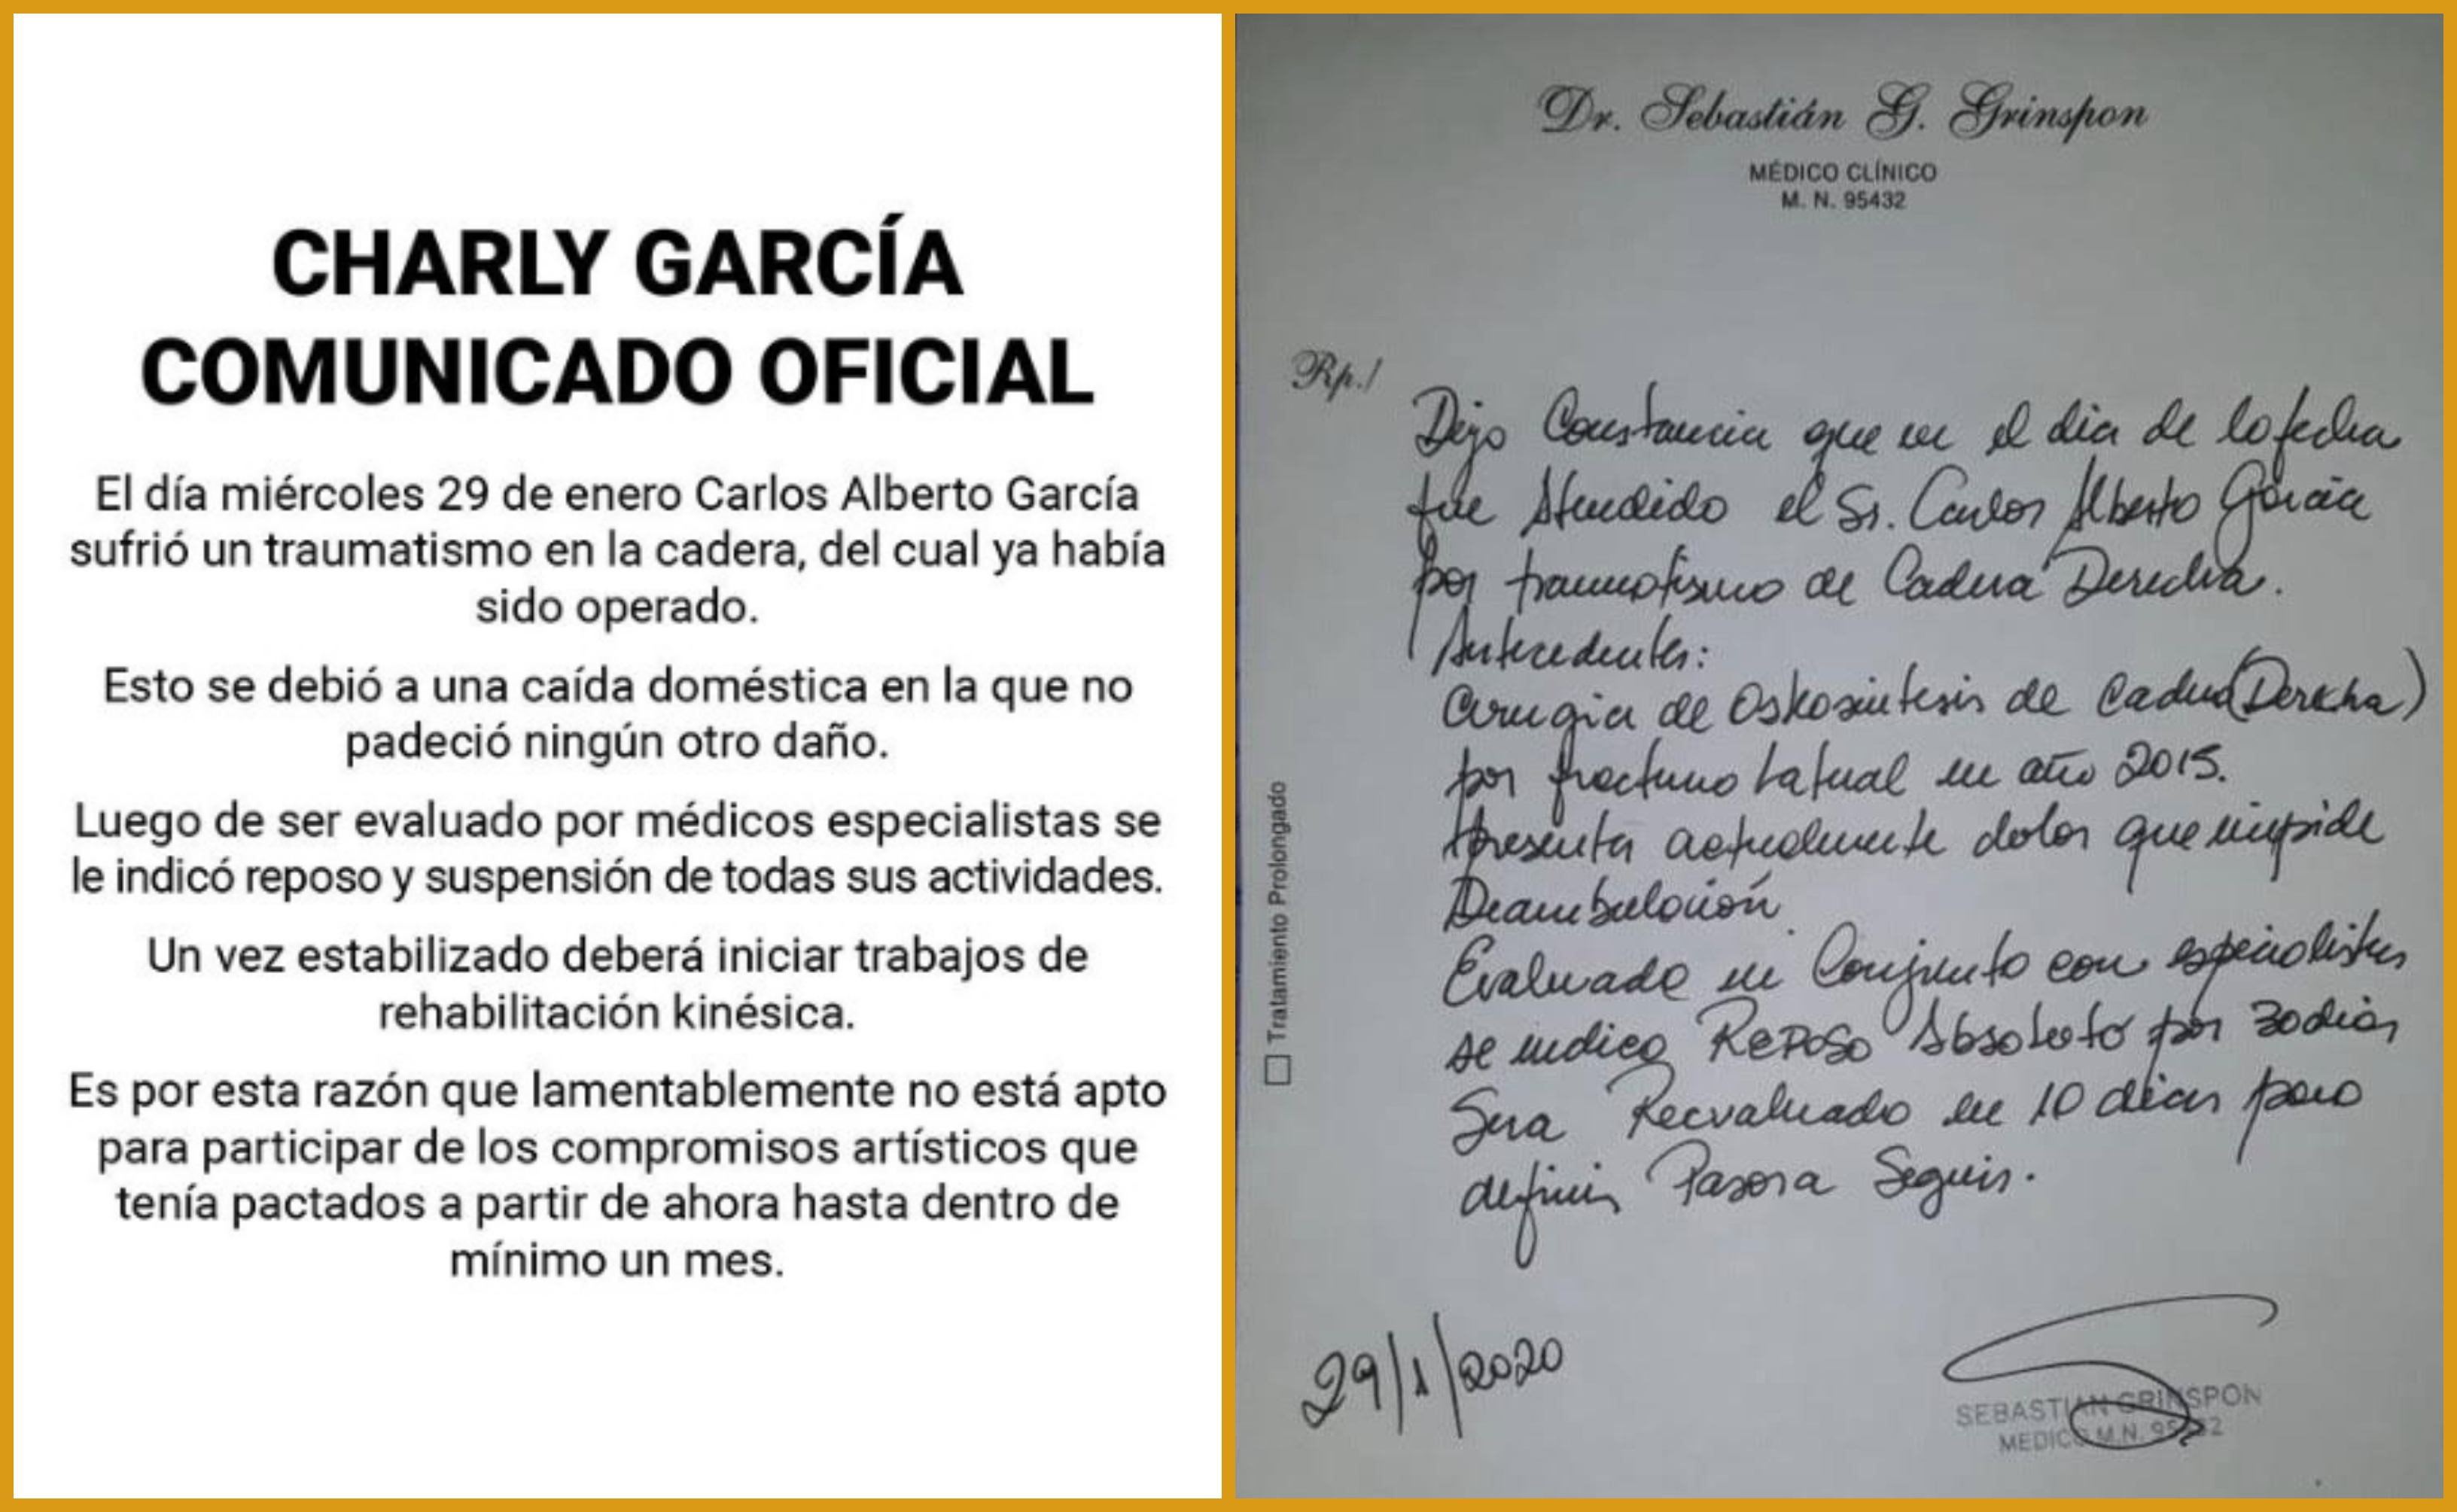 CHARLY GARCÍA
COMUNICADO OFICIAL
El día miércoles 29 de enero Carlos Alberto García
sufrió un traumatismo en la cadera, del cual ya había
sido operado.
Esto se debió a una caída doméstica en la que no
padeció ningún otro daño.
Luego de ser evaluado por médicos especialistas se
le indicó reposo y suspensión de todas sus actividades.
Un vez estabilizado deberá iniciar trabajos de
rehabilitación kinésica.
Es por esta razón que lamentablemente no está apto
para participar de los compromisos artísticos que
tenía pactados a partir de ahora hasta dentro de
mínimo un mes.
Dr. Sebastián G. Grinspon
MÉDICO CLÍNICO
M. N. 95432
Rp./
Dejo Constancia que en el dia de la fecha
fue Atendido el Sr. Carlos Alberto Garcia
por traumatismo de Cadera Derecha.
Antecedentes:
Cirugia de Osteosintesis de Cadera (Derecha)
por fractura lateral en año 2015.
Presenta actualmente dolor que impide
Deambulación.
Evaluado en Conjunto con especialistas
se indica Reposo Absoluto por 30 dias
Sera Reevaluado en 10 dias para
definir Pasos a Seguir.
Tratamiento Prolongado
29/1/2020
SEBASTIAN GRINSPON
MEDICO M.N. 95432